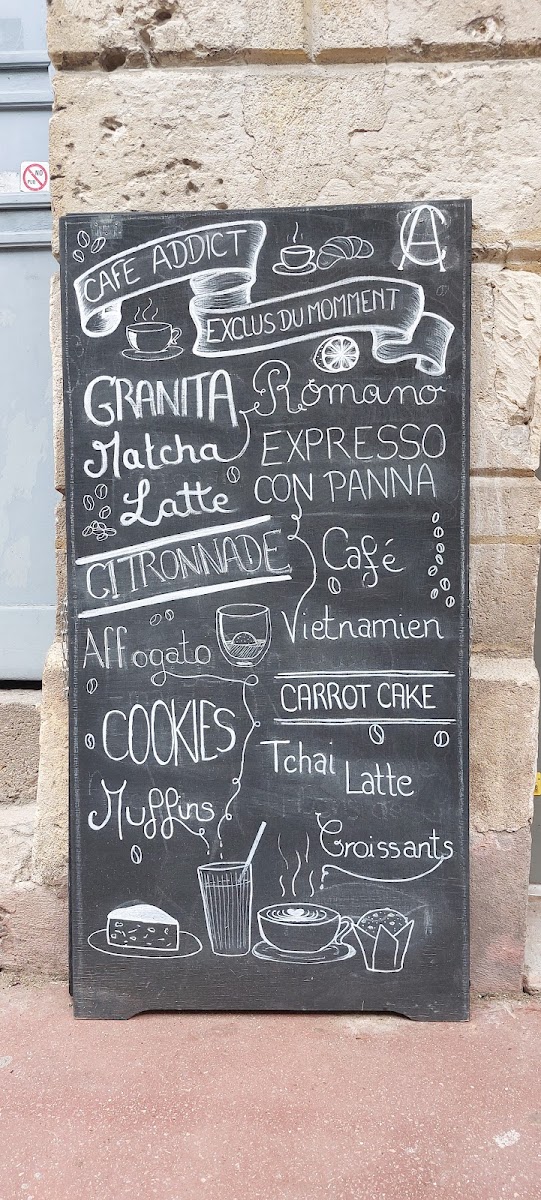 NO
PUB
CAFE ADDICT
CA
EXCLUS DU MOMMENT
GRANITA
Matcha
Latte
Romano
EXPRESSO
CON PANNA
CITRONNADE
Café
Vietnamien
Affogato
CARROT CAKE
COOKIES
Tchaï Latte
Muffins
Croissants